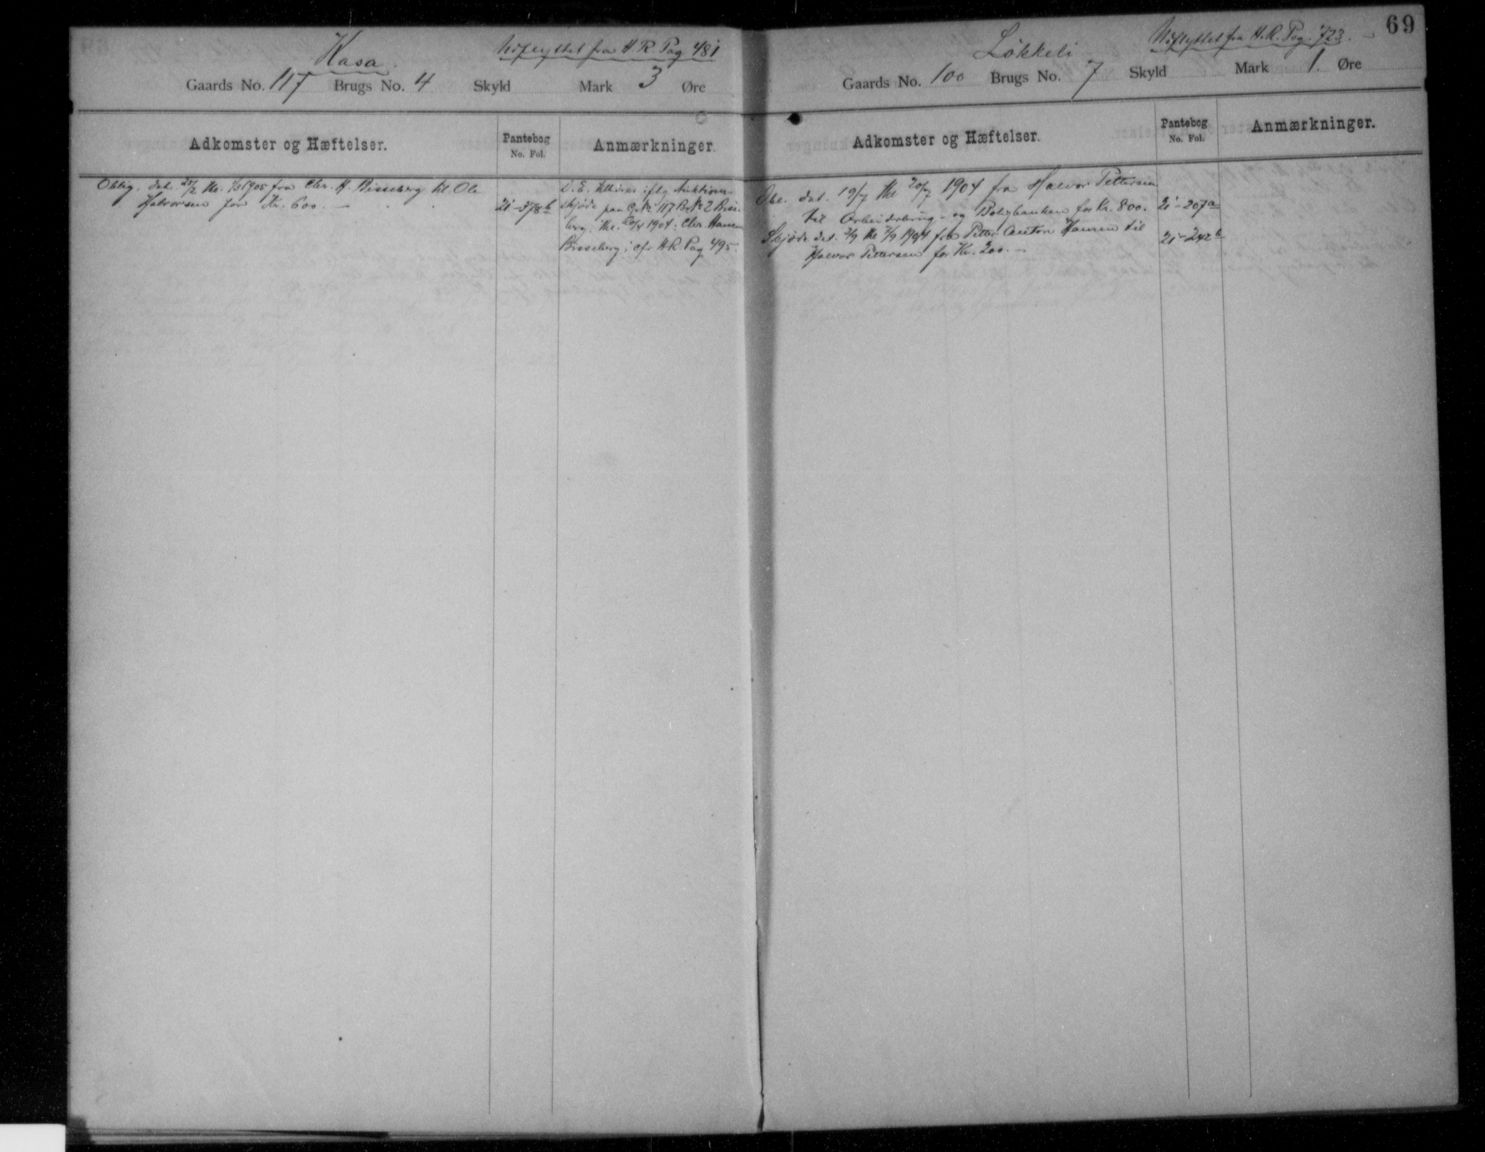 Kasa.
Udflyttet fra H. R. Pag 481
Gaards No. 117 Brugs No. 4 Skyld Mark 3 Øre
Adkomster og Hæftelser.
Pantebog
No. Fol.
Anmærkninger.
Oblig. dat. Thl. 1/3 1905 fra Chr. H. Bisseberg til Ole
Halvorsen for Kr. 600. —
21-378b
D. E. tilhører iflg. Auktions-
skjøde paa G.No 117 B.No 2 Bisse-
berg, thl. 1904: Chr. Hansen
Bisseberg; cfr H. R. Pag 495.
69
Løkkeli
Udflyttet fra H. R. Pag. 723. —
Gaards No. 100 Brugs No. 7 Skyld Mark 1. Øre
Adkomster og Hæftelser.
Pantebog
No. Fol.
Anmærkninger.
Obl. dat. 19/7 thl 20/7 1904 fra Halvor Pettersen
til Arbeiderbrug- og Boligbanken for Kr. 800.
21-207a
Skjøde dat. 2/9 thl 2/9 1904 fra Petter Anton Hansen til
Halvor Pettersen for Kr. 200. —
21-242b